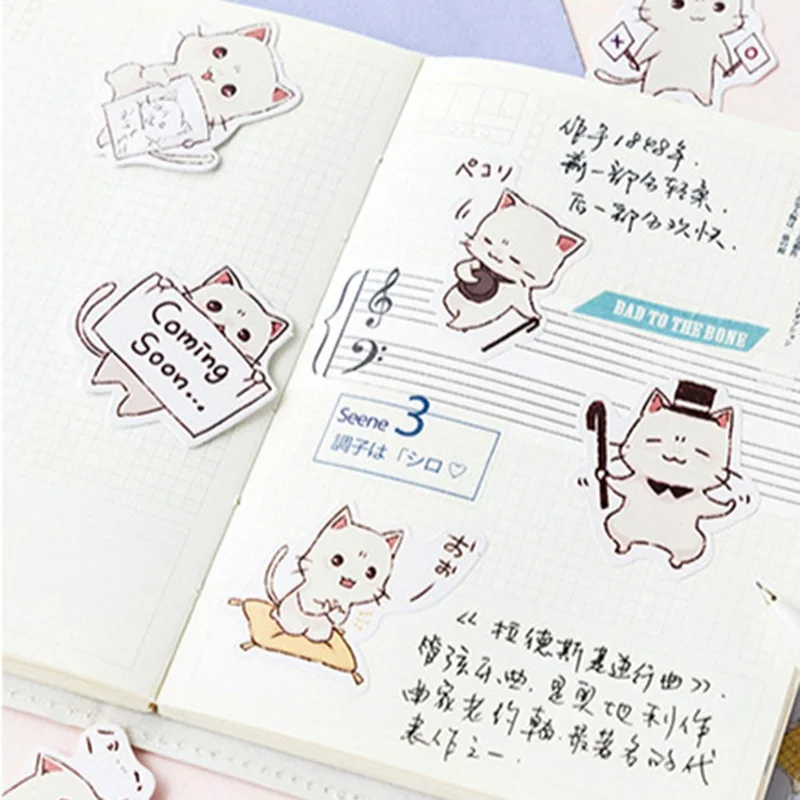 作于1848年.
前一部分轻柔.
后一部分欢快.
ペコリ
BAD TO THE BONE
Coming
Soon...
Seene 3
調子は「シロ♡
おぉー
《拉德斯基进行曲》.
管弦乐曲.是奥地利作
曲家老约翰.最著名的代
表作之一.